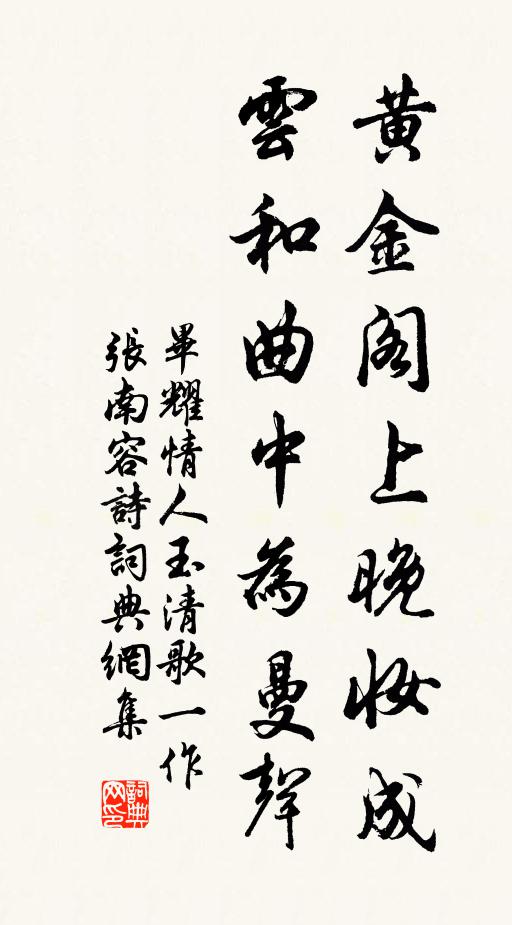 黄金阁上晚妆成
雲和曲中為曼聲
畢耀情人玉清歌一作
張南容詩詞典網集
詞典网印